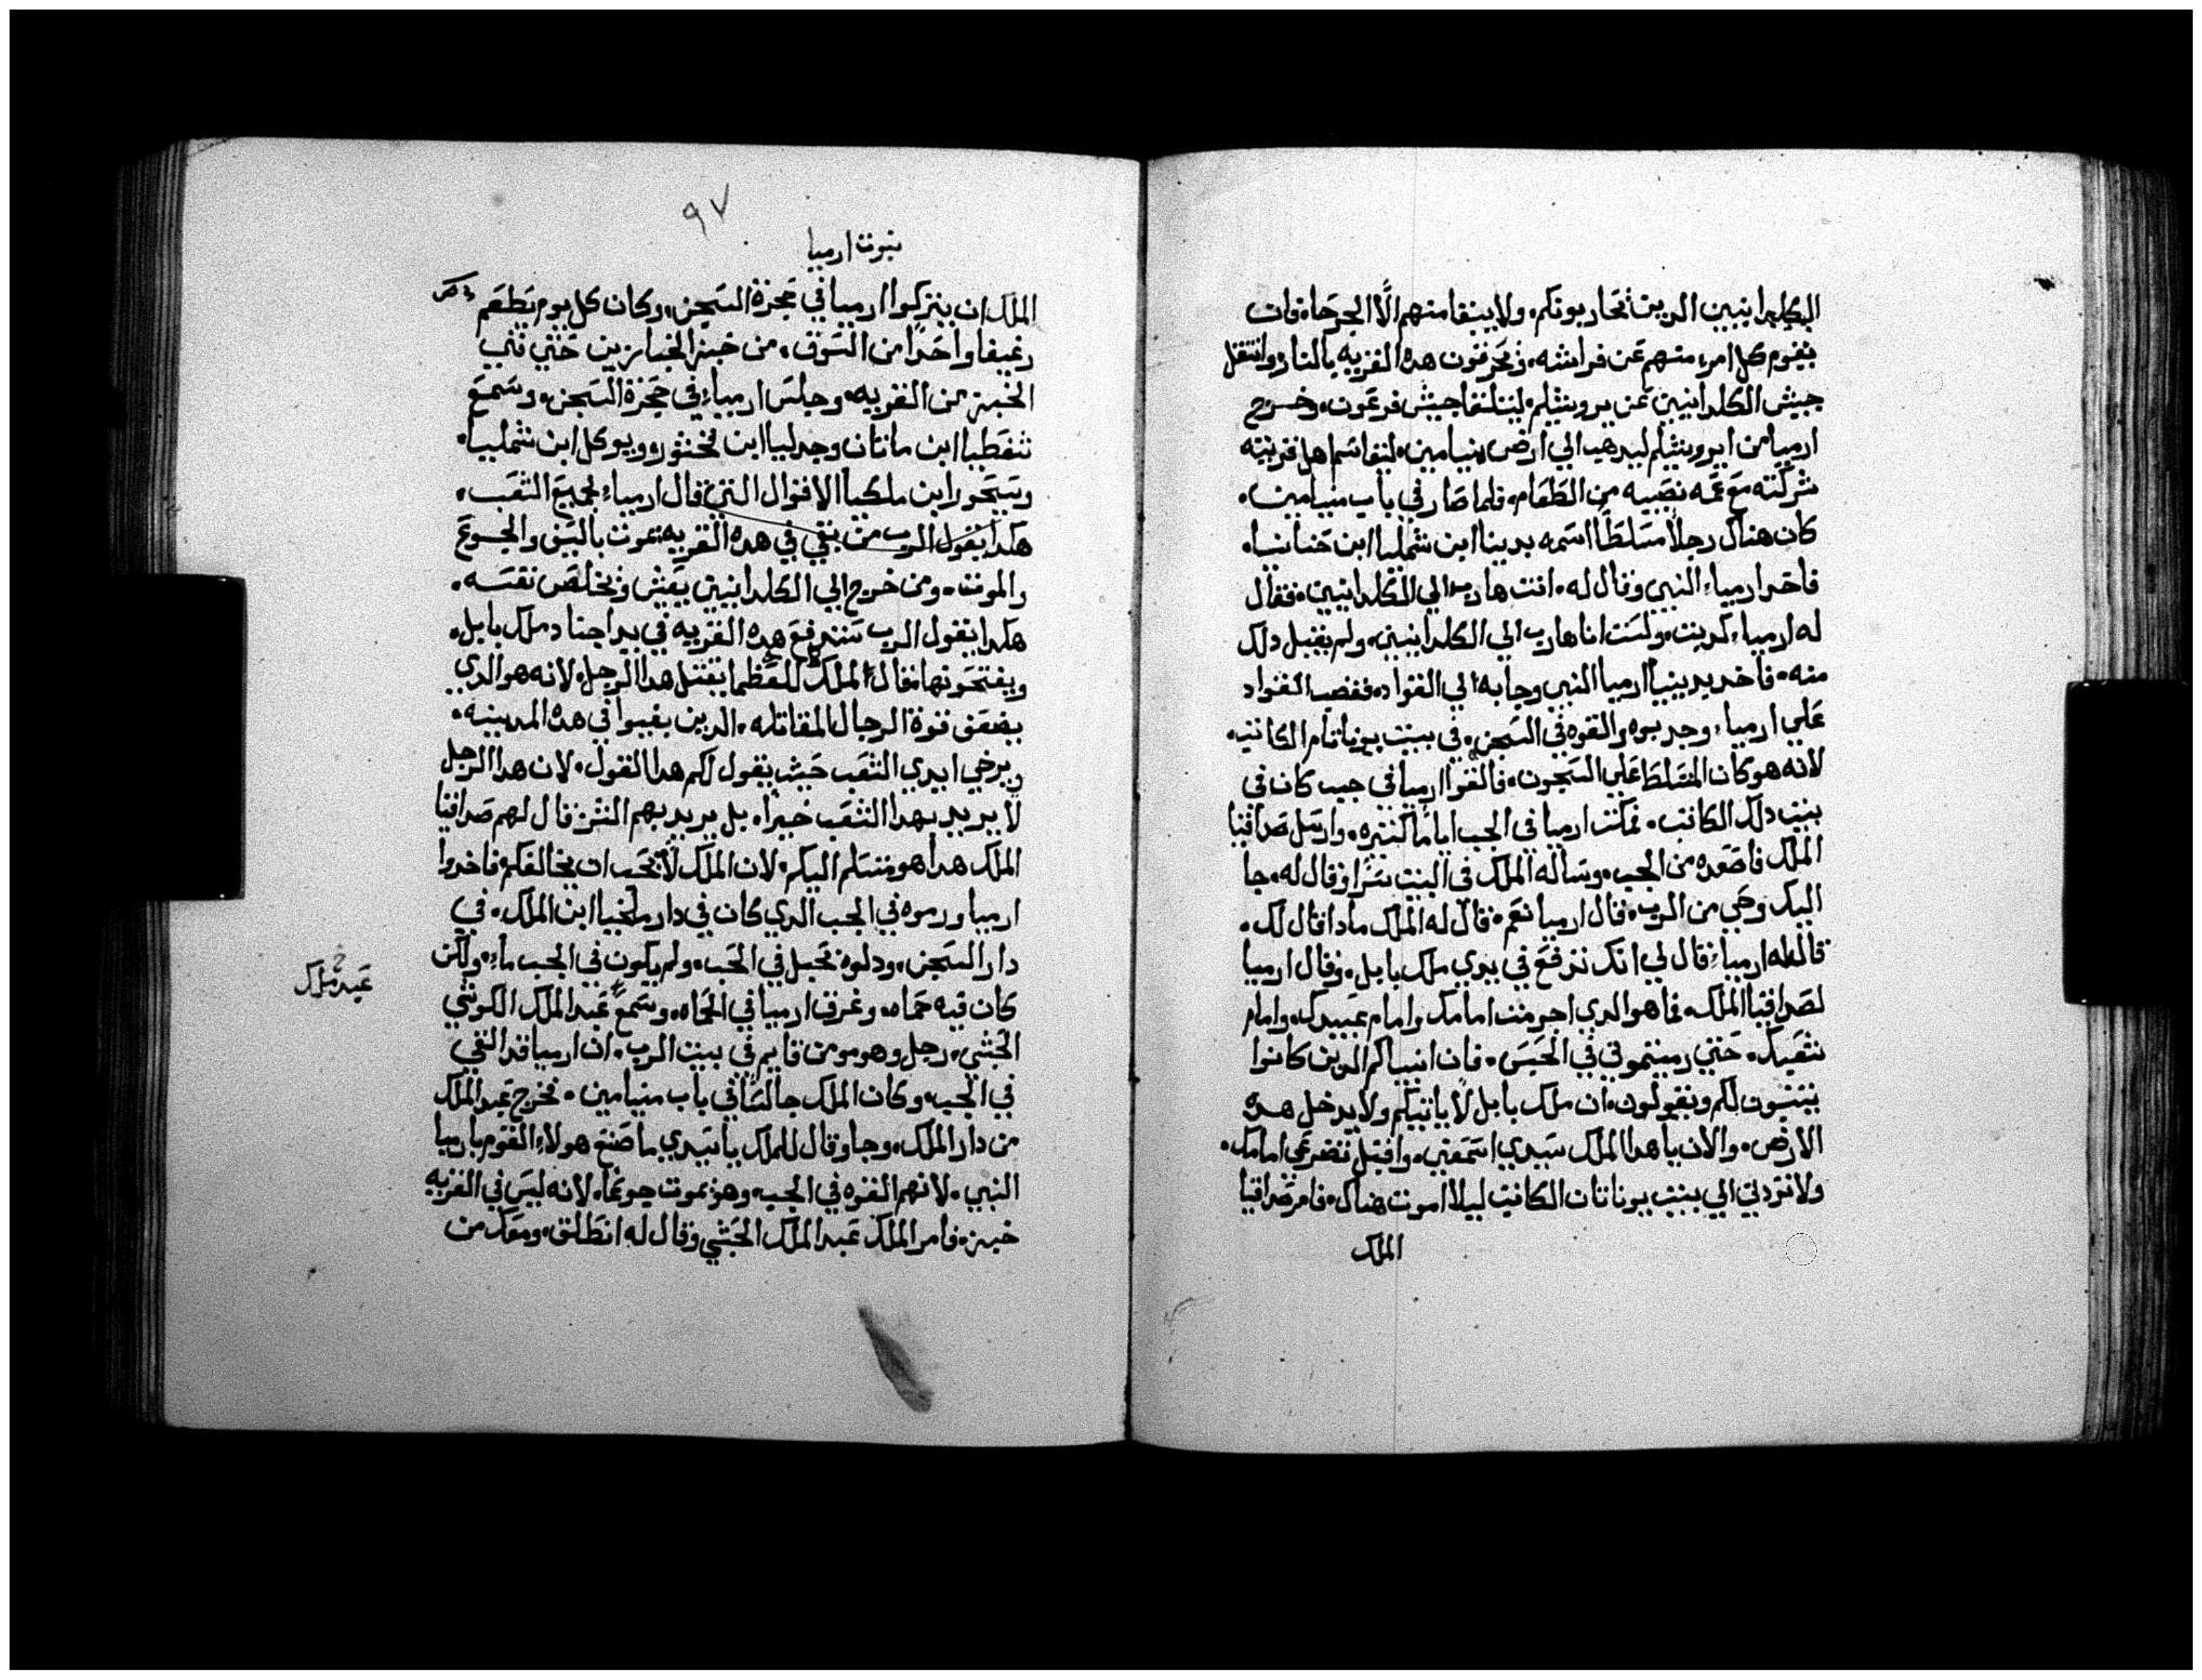 الكلدانيين الدين تحاربونكم. ولا يبقا منهم الّا الجرحاه فان
يقوم كل امرء منهم عن فراشه. وتحرقون هده القريه بالنار وانتقل
جيش الكلدانيين عن يروشليم. ليتلقا جيش فرعون. وخرج
ارميا من ايروشليم ليدهب الي ارض بنيامين. ليتقاسم اهل قريته
شركته مع عمه نصيبه من الطعام. فلما صار في باب بنيامين.
كان هناك رجلاً مسلطاً اسمه يدينا ابن شمليا ابن حنانيا.
فاخد ارمياء النبي وقال له. انت هارب الي الكلدانيين. فقال
له ارمياء كدبت. ولست انا هارب الي الكلدانيين. ولم يقبل دلك
منه. فاخد يدينيا ارميا النبي وجا به الي القواد. فغضب القواد
علي ارمياء وجدبوه والقوه في السجن. في بيت يوناتام الكاتب.
لانه هو كان المسلط علي السجون. فالقوا ارميا في جب كان في
بيت دلك الكاتب. فمكت ارميا في الجب اياماً كتيره. وارسل صداقيا
الملك فاصعده من الجب. وساله الملك في البيت سراً وقال له. جا
اليك وحي من الرب. قال ارميا نعم. قال له الملك مادا قال لك.
قال له ارمياء قال لي انك تدفع في يدي ملك بابل. وقال ارميا
لصداقيا الملك. فما هو الدي اجرمت امامك وامام عبيدك. وامام
شعبك. حتي رميتموني في الحبس. فان انبياكم الدين كانوا
يتنبون لكم ويقولون. ان ملك بابل لا ياتيكم ولا يدخل هده
الارض. والان يا هدا الملك سيدي اسمعني. واقبل تضرعي امامك.
ولا تردني الي بيت يوناتان الكاتب ليلا اموت هناك. فامر صداقيا
الملك
٩٧
نبوت ارميا
الملك ان يتركوا ارميا في حجزة السجن. وكان كل يوم يطعم
رغيفا واحداً من السوق. من خبز الخبازين حتي فني
الخبز من القريه. وجلس ارمياء في حجزة السجن. وسمع
شفطيا ابن ماتان وجدليا ابن فخشور. ويوكل ابن شمليا.
وسحور ابن ملكيا الاقوال التي قال ارمياء لجميع الشعب.
هكدا يقول الرب من بقي في هده القريه يموت بالسيف والجوع
والموت. ومن خرج الي الكلدانيين يعيش وتخلص نفسه.
هكدا يقول الرب ستدفع هده القريه في يد اجناد ملك بابل.
ويفتحونها فقال الملك للعظما يقتل هدا الرجل. لانه هو الدي
يضعف قوة الرجال المقاتله. الدين بقيوا في هده المدينه.
ويرخي ايدي الشعب حيت يقول لكم هدا القول. لان هدا الرجل
لا يريد بهدا الشعب خيراً. بل يريد بهم الشر. قال لهم صداقيا
الملك هدا هو متسلم اليكم. لان الملك لا تحب ان يخالفكم. فاخدوا
ارميا ورموه في الجب الدي كان في دار ملخيا ابن الملك. في
دار السجن. ودلوه بحبل في الجب. ولم يكون في الجب ماء. ولكن
كان فيه حماه. وغرق ارميا في الحماه. وسمع عبد الملك الكوشي
الحبشي. رجل وهو مومن قايم في بيت الرب. ان ارميا قد القي
في الجب. وكان الملك جالساً في باب بنيامين. فخرج عبد الملك
من دار الملك. وجا وقال للملك يا سيدي ما صنع هولاء القوم بارميا
النبي. لانهم القوه في الجب. وهو يموت جوعاً. لانه ليس في القريه
خبز. فامر الملك عبد الملك الحبشي وقال له انطلق. ومعك من
عبد ملك